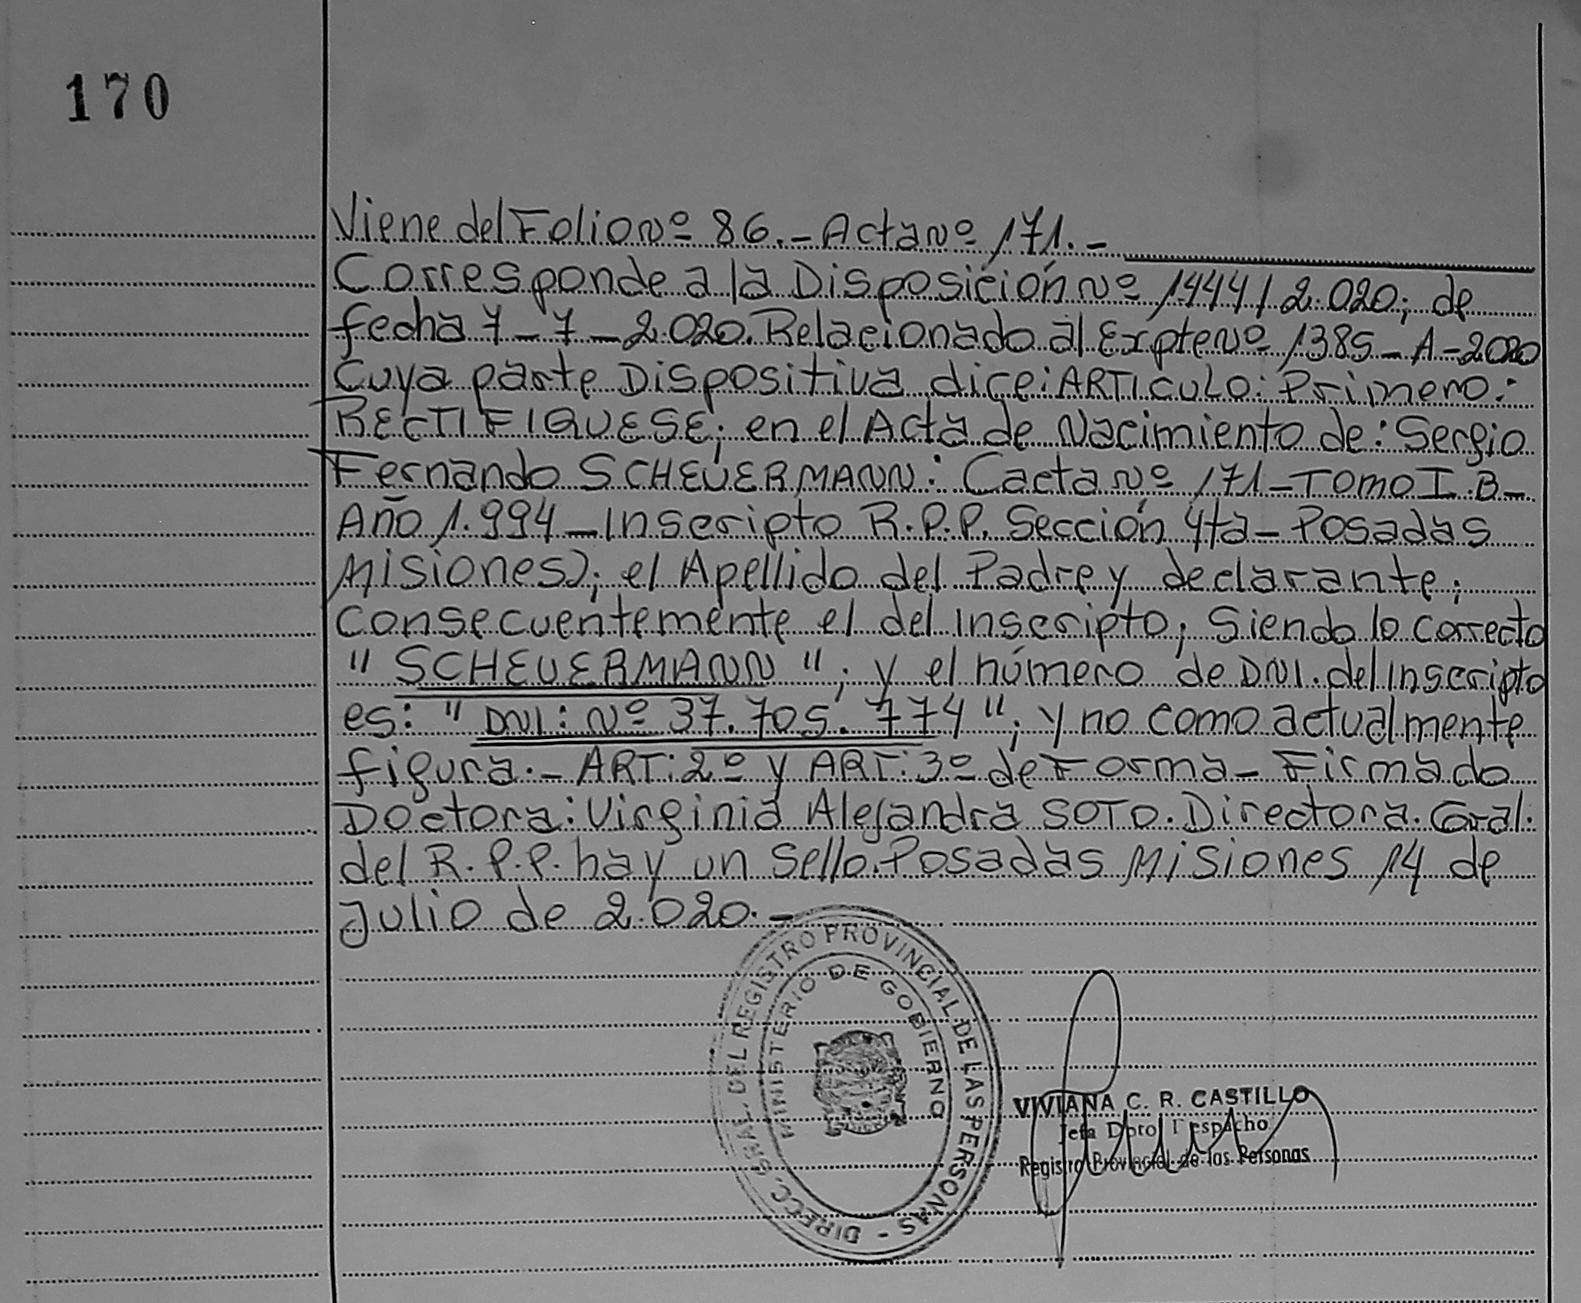 170
Viene del Folio Nº 86.- Acta Nº 171.-
Corresponde a la Disposición Nº 1444/2.020; de
fecha 7-7-2.020. Relacionado al Expte Nº 1385-A-2020
Cuya parte Dispositiva dice: ARTICULO: Primero:
RECTIFIQUESE; en el Acta de Nacimiento de: Sergio
Fernando SCHEUERMANN: Cacta Nº 171-TOMO I.B-
Año 1.994-Inscripto R.P.P. Sección 4ta-Posadas
Misiones); el Apellido del Padre y declarante;
Consecuentemente el del inscripto; Siendo lo correcto
"SCHEUERMANN"; y el número de DNI. del Inscripto
es: "DNI: Nº 37.705.774"; y no como actualmente
figura.- ART: 2º y ART: 3º de Forma- Firmado
Doctora: Virginia Alejandra SOTO. Directora. Gral.
del R.P.P. hay un Sello. Posadas Misiones 14 de
Julio de 2.020.-
DIRECC. GRAL. DEL REGISTRO PROVINCIAL DE LAS PERSONAS -
MINISTERIO DE GOBIERNO
VIVIANA C. R. CASTILLO
Jefa Dpto Despacho
Registro Provincial de las Personas